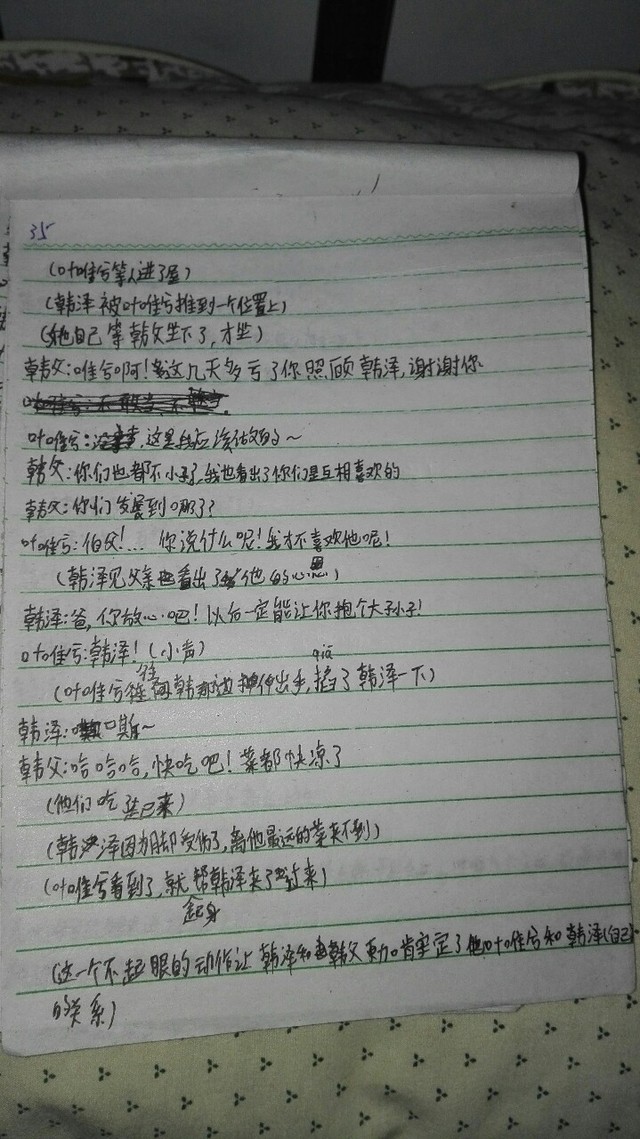 35
(叶唯兮等人进了屋)
(韩泽被叶唯兮推到一个位置上)
(她自己等韩父坐下了,才坐)
韩父:唯兮啊!这几天多亏了你照顾韩泽,谢谢你
叶唯兮:不敢当,不
叶唯兮:没事,这是我应该做的~
韩父:你们也都不小了,我也看出了你们是互相喜欢的
韩父:你们发展到哪了?
叶唯兮:伯父!... 你说什么呢!我才不喜欢他呢!
(韩泽见父亲看出了他的心思)
韩泽:爸,你放心吧!以后一定能让你抱个大孙子!
叶唯兮:韩泽!(小声)
qiā
(叶唯兮往韩那边伸出手,掐了韩泽一下)
韩泽:嘶~
韩父:哈哈哈,快吃吧!菜都快凉了
(他们吃起来)
(韩泽因为脚受伤了,离他最远的菜夹不到)
(叶唯兮看到了,就帮韩泽夹了过来)
起身
(这一个不起眼的动作让韩泽和韩父更加肯定了叶唯兮和韩泽(自己)
的关系)